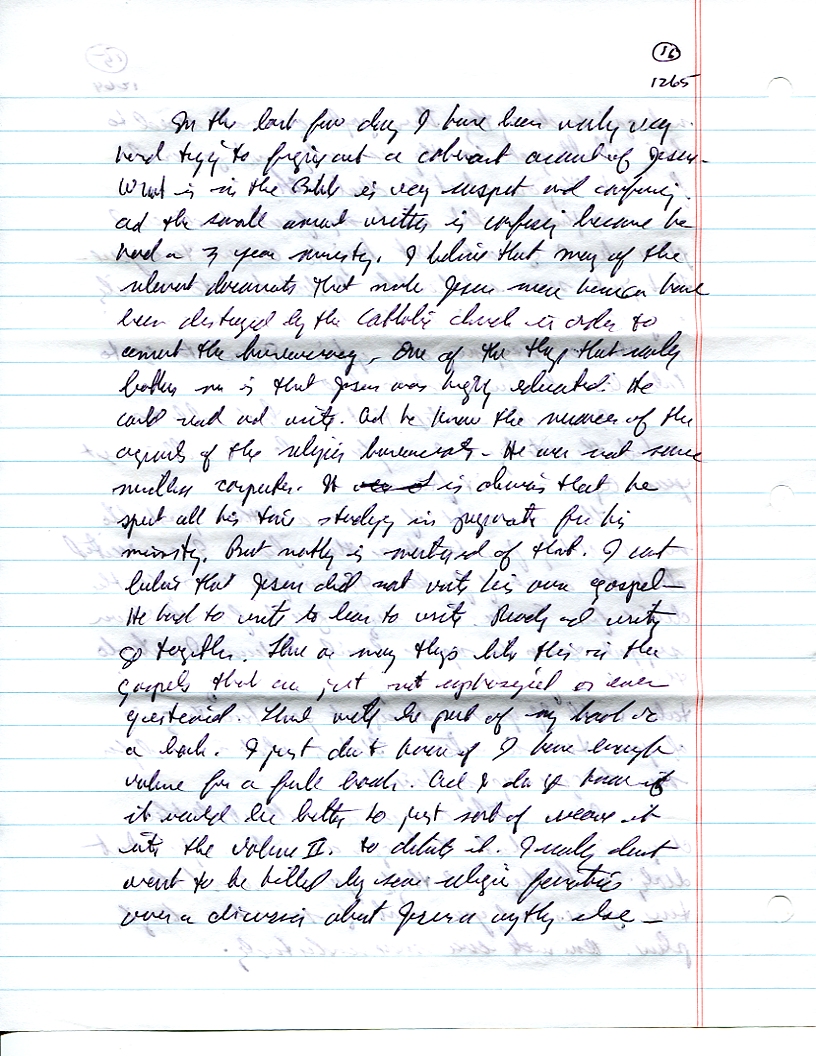 16
1265
In the last few days I have been working very
hard trying to figure out a coherent account of Jesus.
What is in the Bible is very suspect and confusing.
and the small amount written is confusing because he
had a 3 year ministry. I believe that many of the
relevant documents that made Jesus more human have
been destroyed by the Catholic church in order to
cement the bureaucracy. One of the things that really
bothers me is that Jesus was highly educated. He
could read and write. And he knew the nuances of the
arguments of the religious bureaucrats. He was not some
carpenter. It is obvious that he
spent all his time studying in preparation for his
ministry. But nothing is mentioned of that. I
believe that Jesus did not write his own gospel
He had to write to learn to write. Reading and writing
go together. There are many things like this in the
gospels that are just not emphasized or even
questioned. That will be part of my book or
a book. I just don't know if I have enough
volume for a full book. And I don't know if
it would be better to just sort of weave it
into the volume II. to dilute it. I really don't
want to be killed by some religious fanatics
over a discussion about Jesus or anything else